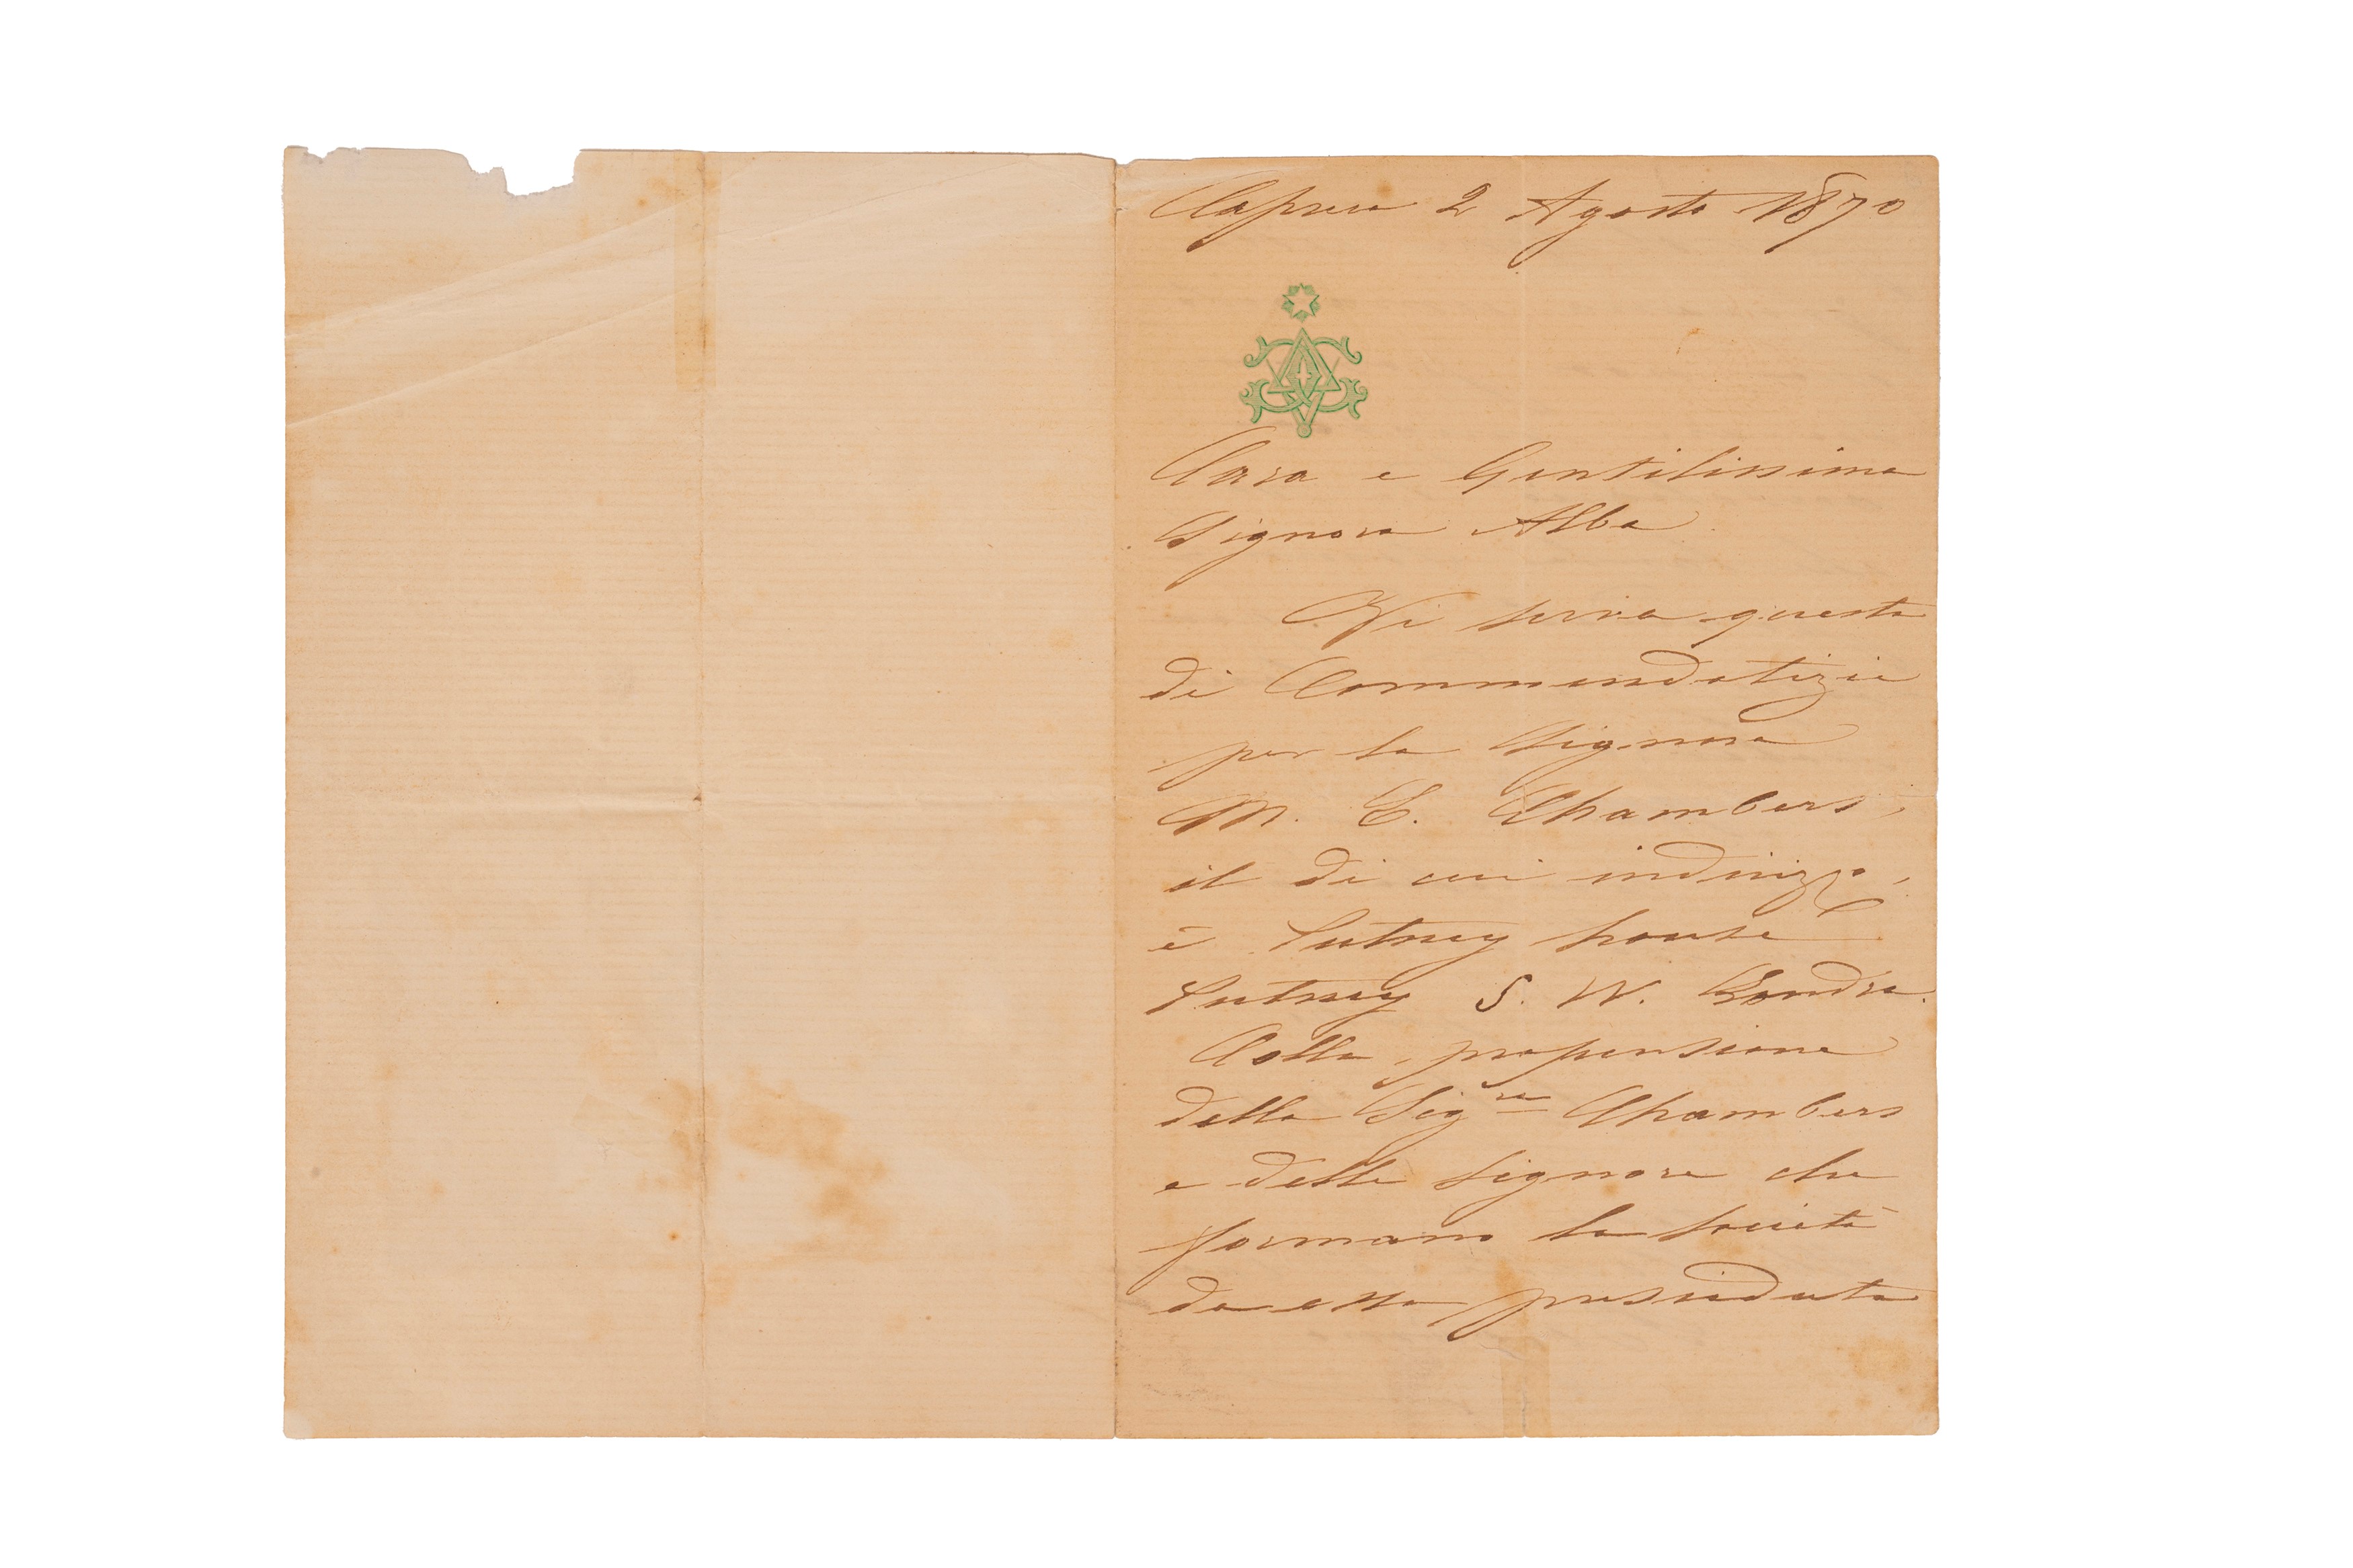 Caprera 2 Agosto 1870
Cara e Gentilissima
Signora Alba
Vi serva questa
di Commendatizia
per la Signora
M. E. Chambers,
il di cui indirizzo,
è Putney house
Putney S. W. Londra.
Colla propensione
della Sig.ra Chambers
e delle Signore che
formano la società
da essa presieduta